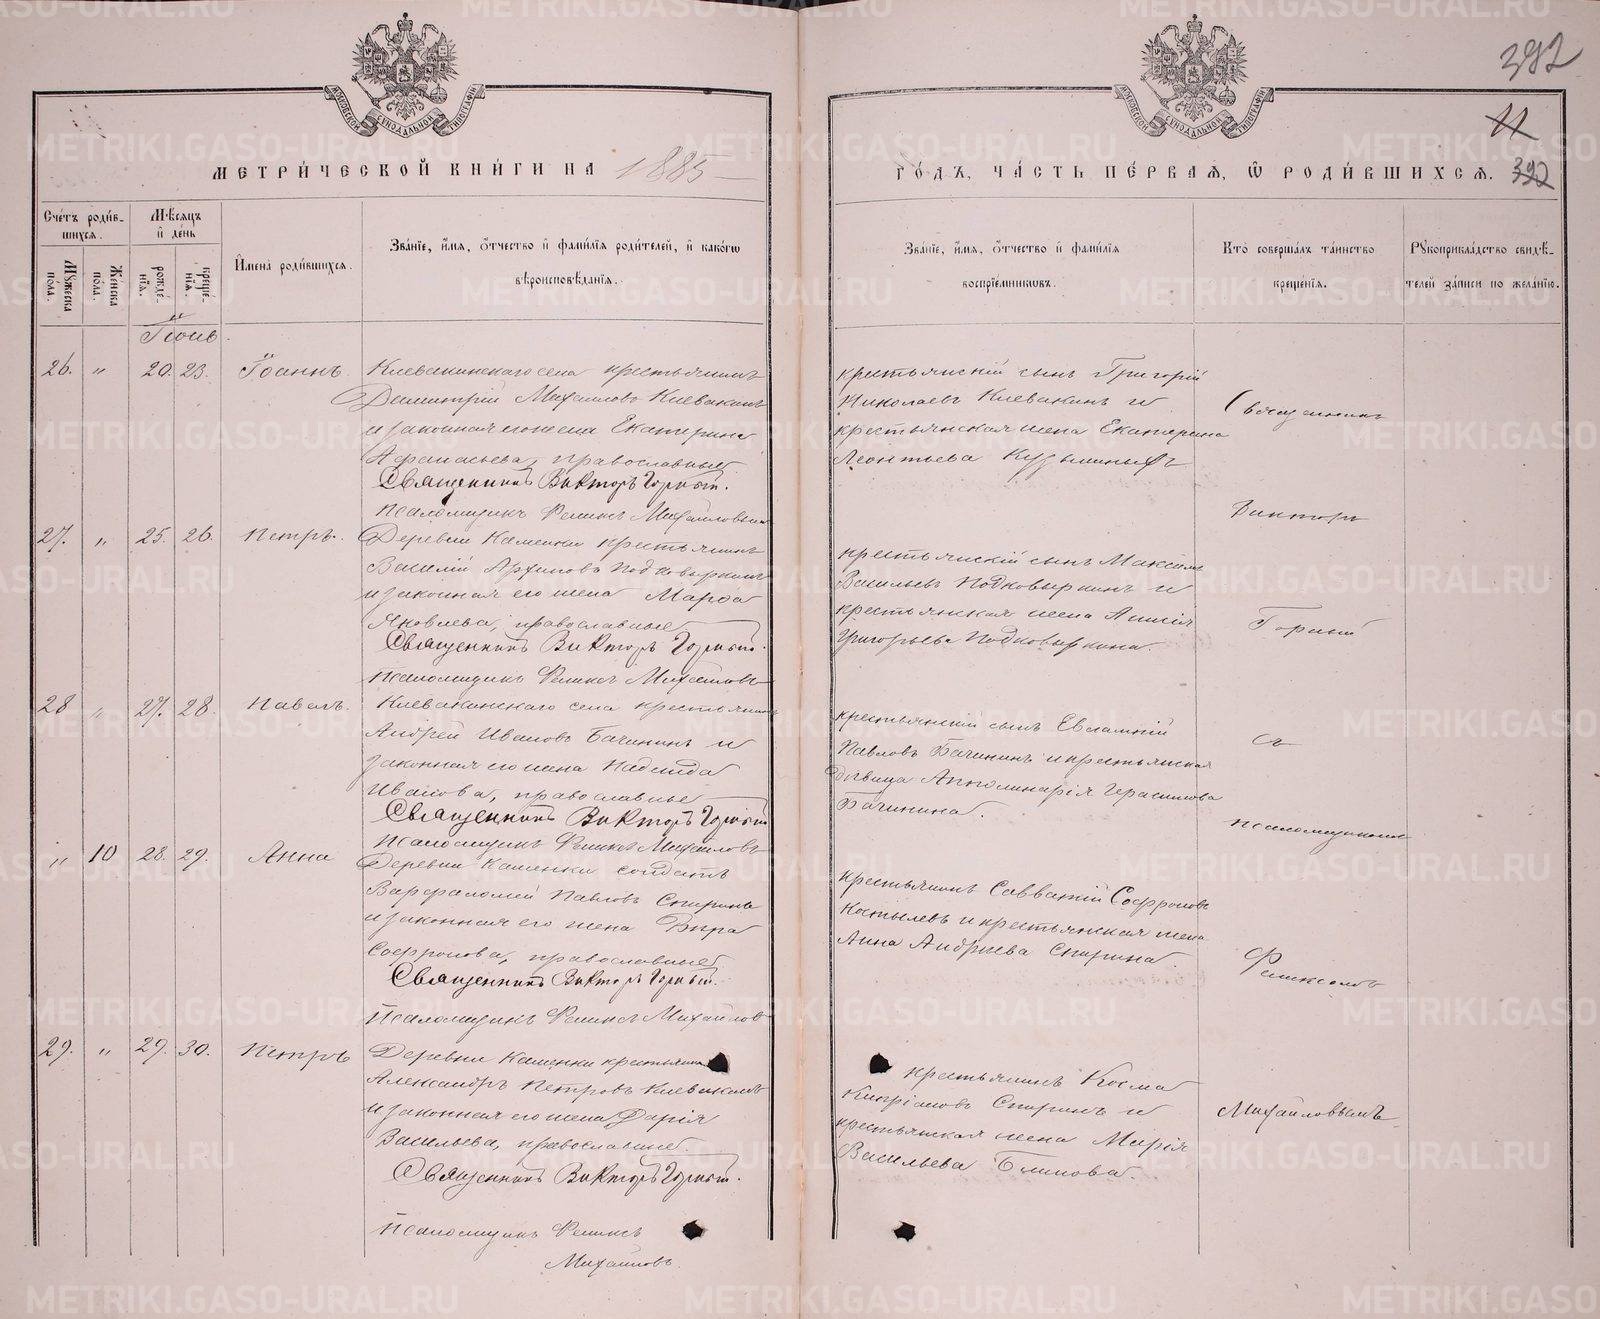 392
11
392
МОСКОВСКОЙ СѴНОДАЛЬНОЙ ТИПОГРАФІИ
МОСКОВСКОЙ СѴНОДАЛЬНОЙ ТИПОГРАФІИ
МЕТРИ́ЧЕСКОЙ КНИ́ГИ НА 1885
ГО́ДЪ, ЧА́СТЬ ПЕ́РВАѦ, Ѡ РОДИ́ВШИХСѦ.
Сче́тъ роди́в-
шихсѧ.
Мꙋжеска по́ла.
Женска по́ла.
Мѣ́сѧцъ и де́нь
рожде́нїѧ.
креще́нїѧ.
Имена̀ роди́вшихсѧ.
Зва́нїе, и́мѧ, ѻ́тчество и фами́лїѧ роди́телей, и како́гѡ
вѣроисповѣ́данїѧ.
Зва́нїе, и́мѧ, ѻ́тчество и фами́лїѧ
воспрїе́мникѡвъ.
Кто̀ соверша́лъ та́инство
креще́нїѧ.
Рꙋкоприкла́дство свидѣ́-
телей за́писи по жела́нїю.
26. " 20. 23. Іоаннъ.
Клевакинскаго села крестьянинъ
Димитрій Михаиловъ Клевакинъ
и законная его жена Екатерина
Афанасьева, православные
Священникъ Викторъ Горный.
Псаломщикъ Феликсъ Михайловъ
крестьянскій сынъ Григорій
Николаевъ Клевакинъ и
крестьянская жена Екатерина
Леонтьева Кузьминыхъ
27. " 25. 26. Петръ.
Деревни Каменки крестьянинъ
Василій Архиповъ Подковыркинъ
и законная его жена Марѳа
Яковлева, православные
Священникъ Викторъ Горный.
Псаломщикъ Феликсъ Михайловъ
крестьянскій сынъ Максимъ
Васильевъ Подковыркинъ и
крестьянская жена Анисія
Григорьева Подковыркина.
28 " 27. 28. Павелъ.
Клевакинскаго села крестьянинъ
Андрей Ивановъ Бачининъ и
законная его жена Надежда
Иванова, православные
Священникъ Викторъ Горный
Псаломщикъ Феликсъ Михайловъ
крестьянскій сынъ Евлампій
Павловъ Бачининъ и крестьянская
дѣвица Апполинарія Герасимова
Бачинина.
" 10 28. 29. Анна
Деревни Каменки солдатъ
Варфоломей Павловъ Спиринъ
и законная его жена Вѣра
Софронова, православные
Священникъ Викторъ Горный.
Псаломщикъ Феликсъ Михайловъ
крестьянинъ Савватій Софроновъ
Костылевъ и крестьянская жена
Анна Андреева Спирина.
29. " 29. 30. Петръ
Деревни Каменки крестьянинъ
Александръ Петровъ Клевакинъ
и законная его жена Дарія
Васильева, православные.
Священникъ Викторъ Горный.
Псаломщикъ Феликсъ
Михайловъ.
крестьянинъ Косма
Кипріановъ Спиринъ и
крестьянская жена Марія
Васильева Блинова.
Священникъ
Викторъ
Горный
съ
псаломщикомъ
Феликсомъ
Михайловымъ
METRIKI.GASO-URAL.RU